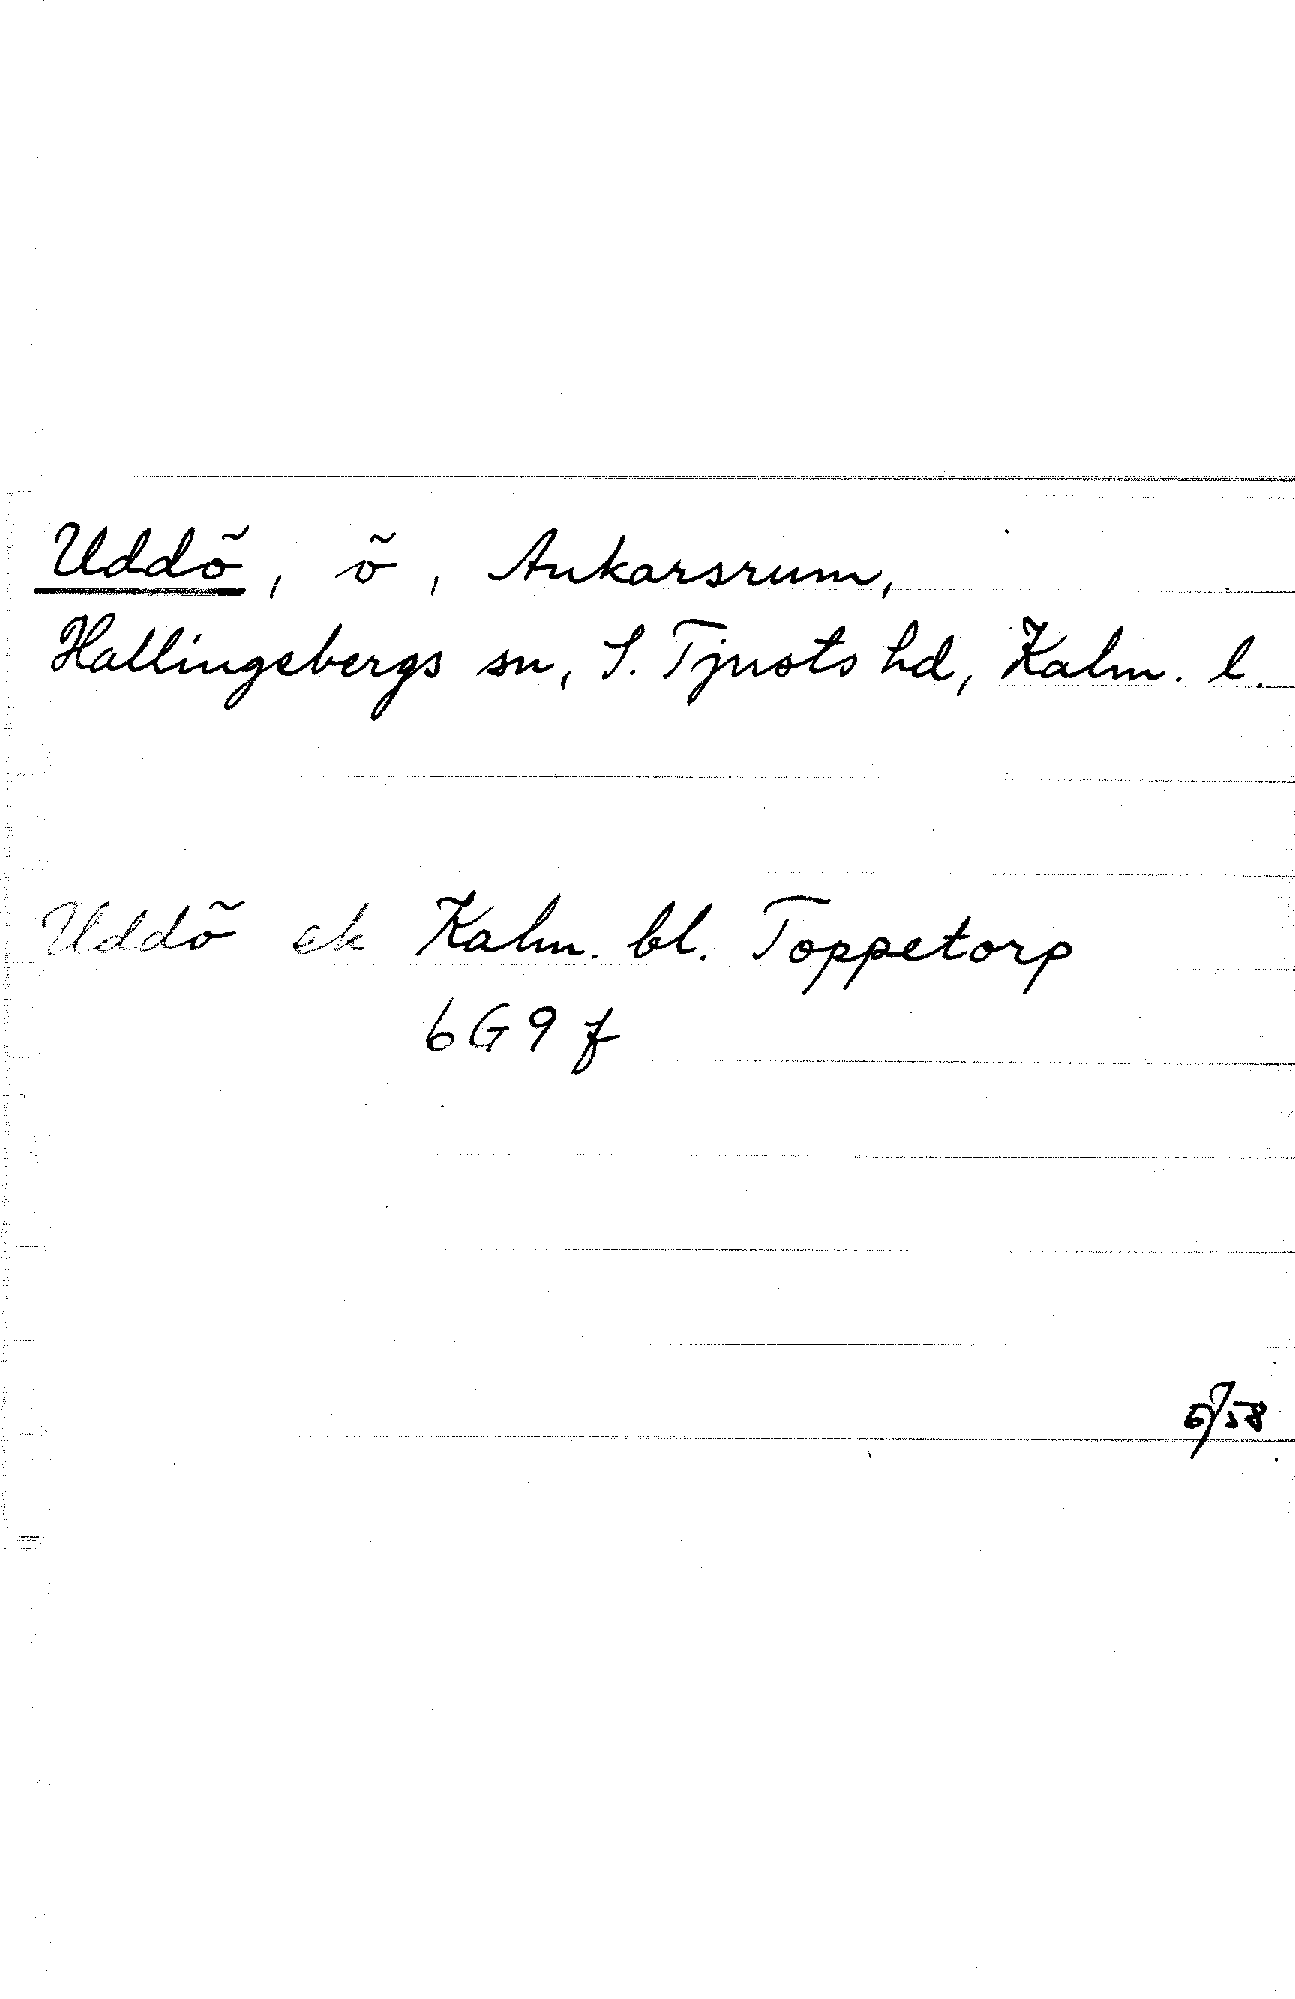 Uddö, ö, Ankarsrum,
Hallingebergs sn, S. Tjusts hd, Kalm. l.
Uddö ek Kalm. bl. Toppetorp
6G9f